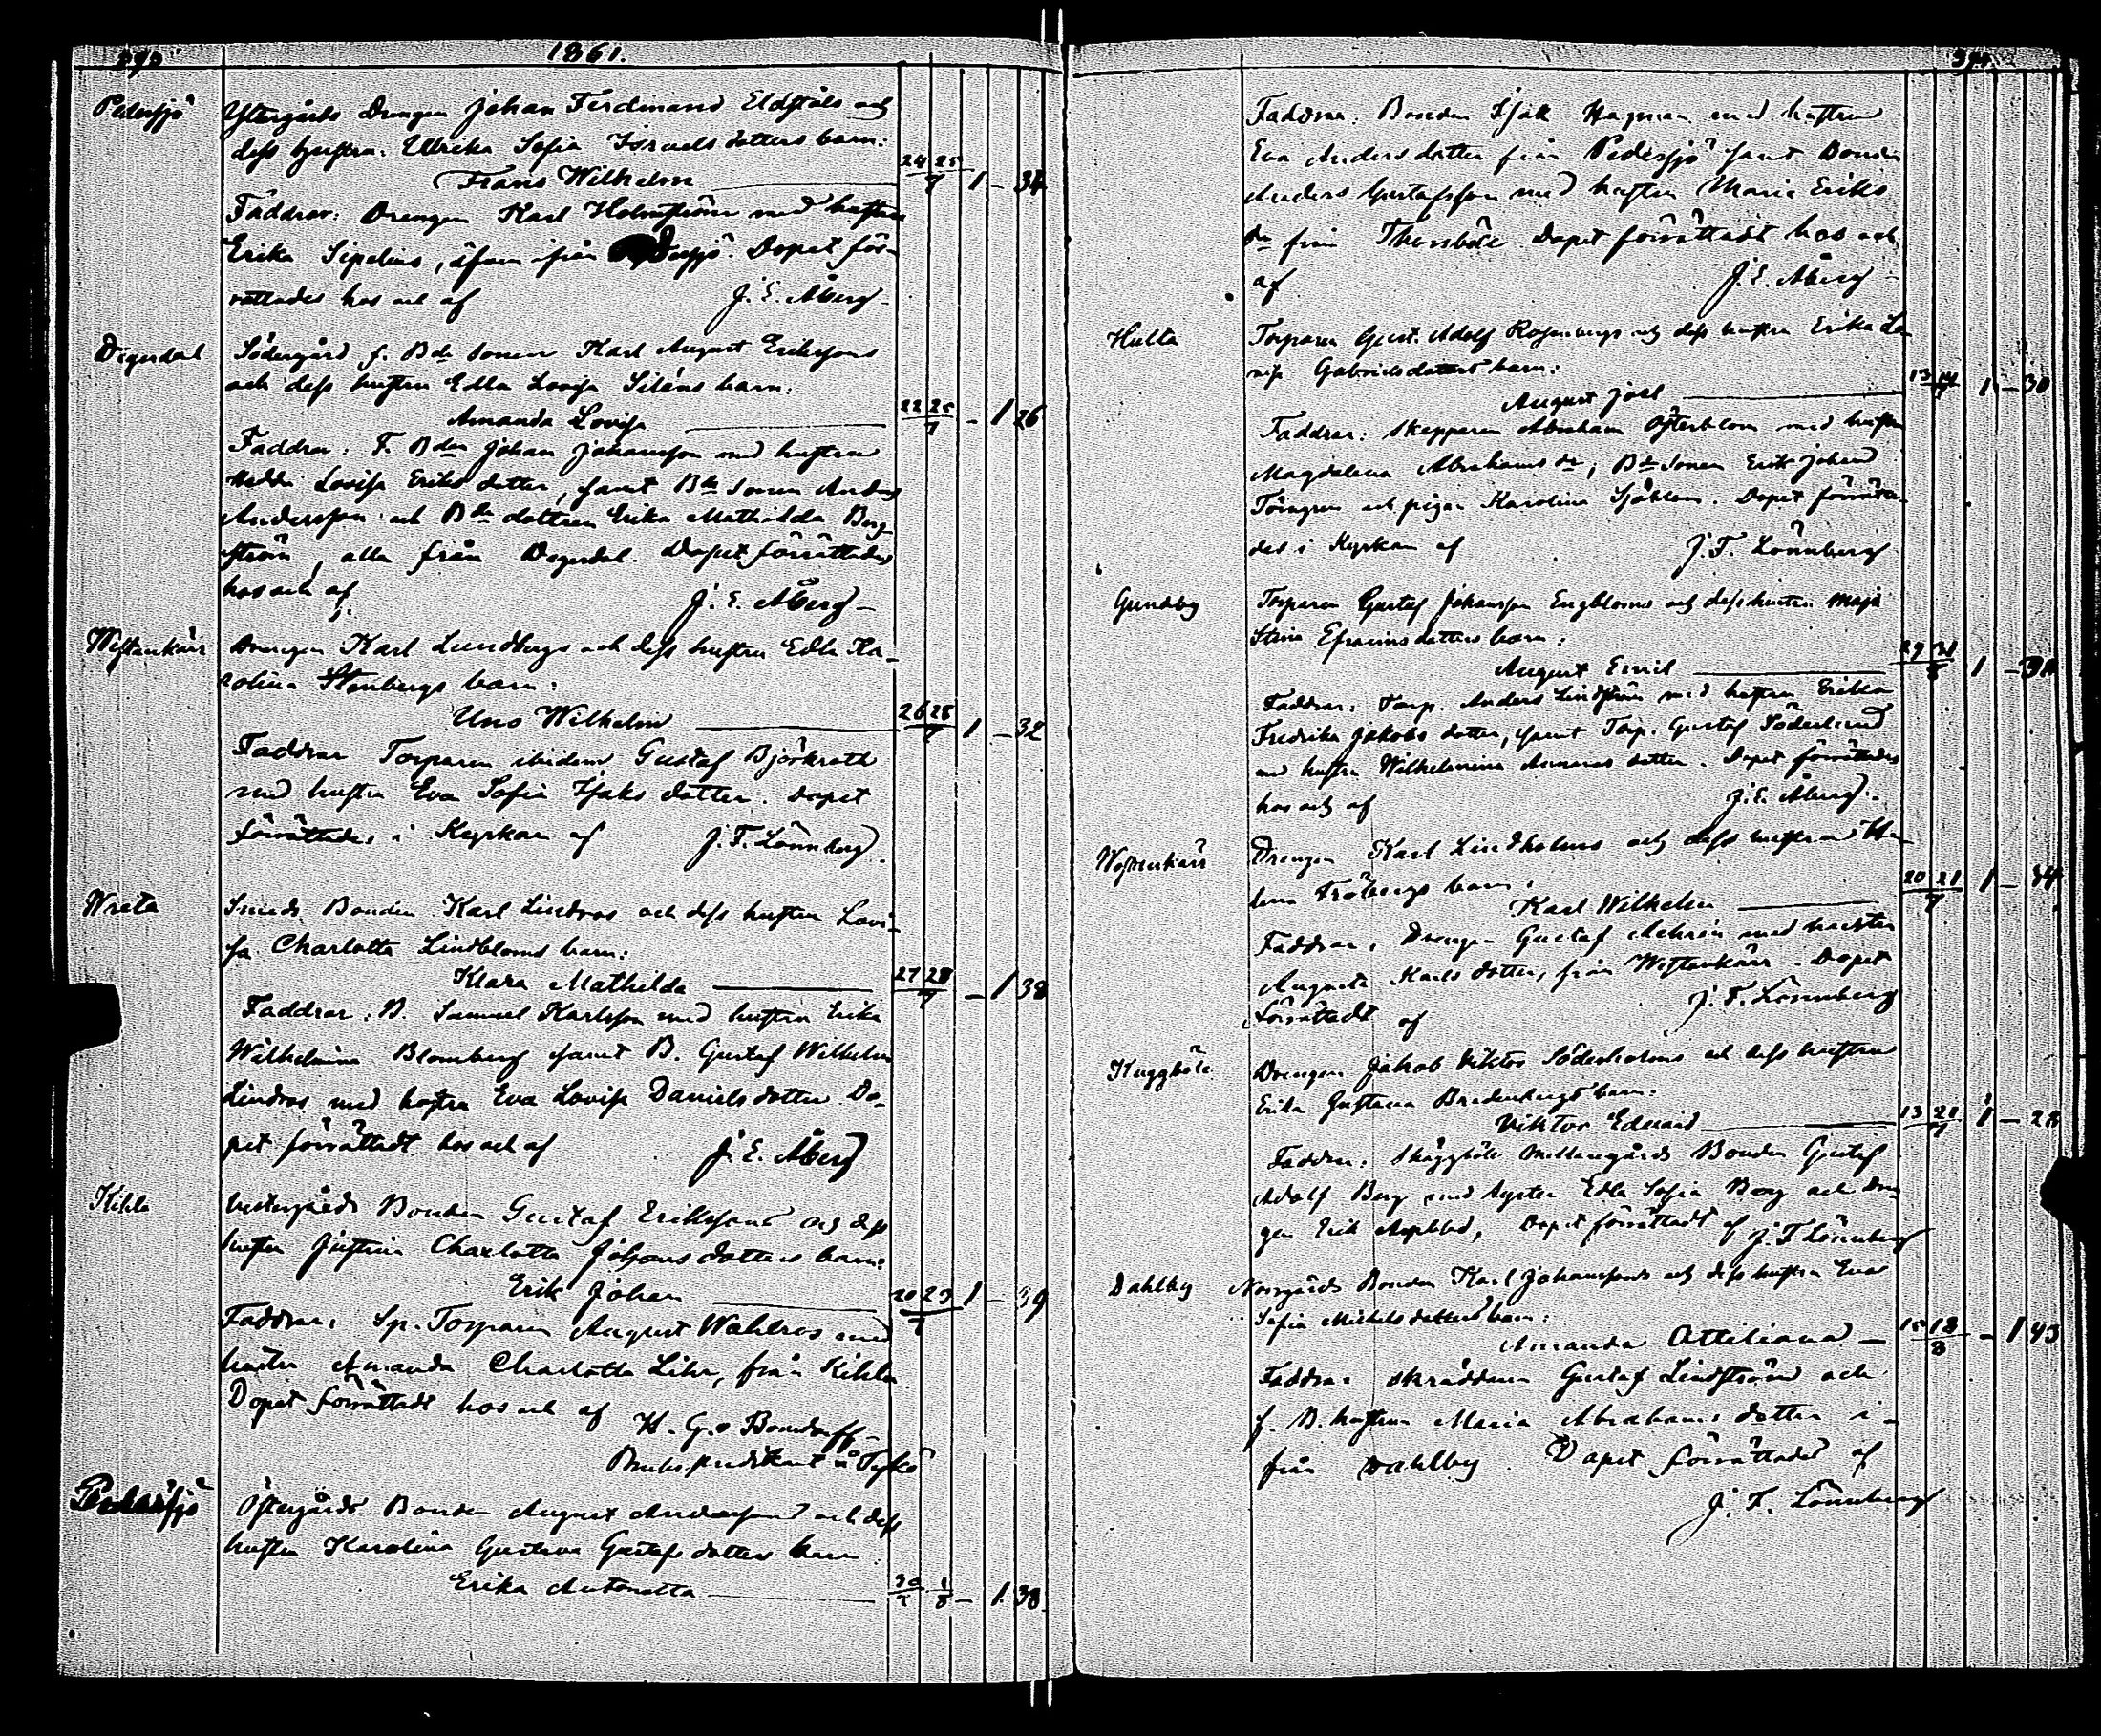 1861.
Pedersjö Ystergårds Drengen Johan Ferdinand Eldståls och
dess hustru Ulrika Sofia Israels dotters barn:
Frans Wilhelm 24 25/7 1 – 34
Faddrar: Drengen Karl Holmström med hustru
Erika Sipelius, äfven ifrån Dopet för-
rättades hos och af J. E. Åberg
Degerdal Södergård f. Bde sonen Karl August Erikssons
och dess hustru Edla Lovisa Siléns barn:
Amanda Lovisa 22 25/7 – 1 26
Faddrar: F. Bden Johan Johansson med hustru
Hedda Lovisa Eriks dotter, samt Bde sonen Anders
Andersson och Bde dottren Erika Mathilda Berg-
ström, alla från Degerdal. Dopet förrättades
hos och af J. E. Åberg
Westankärr Drengen Karl Lundbergs och dess hustru Edla Ka-
rolina Stenbergs barn:
Uno Wilhelm 26 28/7 1 – 32
Faddrar Torparen ibidem Gustaf Björkroth
med hustru Eva Sofia Isaks dotter. Dopet
förrättades i Kyrkan af J. F. Lönnberg.
Wreta Smeds Bonden Karl Lindros och dess hustru Lovi-
sa Charlotta Lindbloms barn:
Klara Mathilda 27 28/7 – 1 38
Faddrar: B. Samuel Karlsson med hustru Erika
Wilhelmina Blomberg samt B. Gustaf Wilhelm
Lindros med hustru Eva Lovisa Daniels dotter Do-
pet förrättadt hos och af J. E. Åberg
Kihla Westergårds Bonden Gustaf Erikssons och dess
hustru Justina Charlotta Johans dotters barn:
Erik Johan 20 23/7 1 – 39
Faddrar: Sp. Torparen August Wahlros med
hustru Amanda Charlotta Lihr, från Kihla
Dopet förrättadt hos och af K. G. v Bonsdorff
Bruks predikant å Tykö
Pedersjö Östergårds Bonden August Anderssons och dess
hustru Karolina Gustava Gustafs dotters barn
Erika Antonetta 30/7 1/8 – 1 38
Faddrar: Bonden Isak Hagman med hustru
Eva Anders dotter från Pedersjö samt Bonden
Anders Gustafsson med hustru Maria Eriks
dr från Thorsböle Dopet förrättadt hos och
af J. E. Åberg
Hulta Torparen Gust. Adolf Rosenbergs och dess hustru Erika Lo-
visa Gabriels dotters barn:
August Joel 13 14/7 1 – 30
Faddrar: Skepparen Abraham Österblom med hustru
Magdalena Abrahams dr, Bde sonen Erik Johan
Törngren och pigan Karolina Sjöblom. Dopet förrätta-
des i Kyrkan af J. F. Lönnberg
Gundby Torparen Gustaf Johansson Engbloms och dess hustru Maja
Stina Efraims dotters barn:
August Emil 29 31/8 1 –
Faddrar: Torp. Anders Lindström med hustru Erika
Fredrika Jakobs dotter, samt Torp. Gustaf Söderlund
med hustru Wilhelmina dotter. Dopet förrättades
hos och af J. E. Åberg.
Westankärr Drengen Karl Lindholms och dess hustru
Fröbergs barn:
Karl Wilhelm 20 21/7 1 – 34
Faddrar: Drengen Gustaf med hustru
Augusta Karls dotter, från Westankärr. Dopet
förrättadt af J. F. Lönnberg
Kuggböle Drengen Jakob Viktor Söderholms och dess hustru
Erika Gustava Bredenbergs barn:
Viktor Edvard 13 21/7 1 – 28
Faddrar: Skäggböle Mellangårds Bonden Gustaf
Adolf Berg med syster Edla Sofia Berg och dren-
gen Erik Asplund, Dopet förrättadt af J. F. Lönnberg
Dahlby Norrgårds Bonden Karl Johanssons och dess hustru Eva
Sofia Mickels dotters barn:
Amanda Ottiliana 15 18/8 – 1 43
Faddrar Skräddaren Gustaf Lindström och
f. B. hustrun Maria Abrahams dotter i-
från Dahlby Dopet förrättades af
J. F. Lönnberg